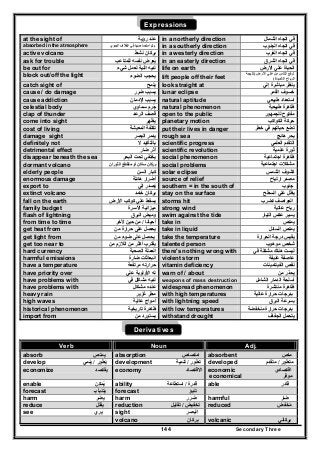 Expressions
at the sight of عند رؤية
absorbed in the atmosphere
active volcano بركان نشط
ask for trouble يعرض نفسه للمتاعب
be out for
block out/off the light يحجب الضوء
catch sight of يلمح
cause / do damage يسبب ضرر
cause addiction يسبب الإدمان
celestial body جرم سماوى
clap of thunder قصف الرعد
come into sight يظهر
cost of living تكلفة المعيشة
damage sight يضر البصر
definitely not بالتأكيد لا
detrimental effect أثر ضار
disappear beneath the sea يختفى تحت البحر
dormant volcano
elderly people كبار السن
enormous damage أضرار هائلة
export to يصدر إلى
extinct volcano بركان خامد
fall on the earth يسقط على كوكب الأرض
family budget ميزانية الأسرة
flash of lightning وميض البرق
from time to time أحيانا / من حين لآخر
get heat from يحصل على حرارة من
get light from يحصل على ضوء من
get too near to يقترب أكثر من اللازم من
hard currency العملة الصعبة
harmful emissions انبعاثات ضارة
have a temperature حرارته مرتفعة
have priority over له الأولوية على
have problems with لديه مشاكل فى
have problems with عنده مشاكل
heavy rain مطر غزير
high waves أمواج عالية
historical phenomenon ظاهرة تاريخية
import from يستورد من
in a northerly direction فى اتجاه الشمال
in a southerly direction فى اتجاه الجنوب
in a westerly direction فى اتجاه الغرب
in an easterly direction فى اتجاه الشرق
life on earth الحياة على الأرض
lift people off their feet
looks straight at إلى مباشرة ينظر
lunar eclipse خسوف القمر
natural aptitude استعداد طبيعى
natural phenomenon ظاهرة طبيعية
open to the public مفتوح للجمهور
planetary motion حركة الكواكب
put their lives in danger تضع حياتهم فى خطر
rough sea بحر هائج
scientific progress التقدم العلمى
scientific revolution ثورة علمية
social phenomenon ظاهرة اجتماعية
social problems مشكلات اجتماعية
solar eclipse كسوف الشمس
source of relief مصدر ارتياح
southern = in the south of جنوب
stay on the surface يظل على السطح
storms hit العواصف تضرب
strong wind ريح عاتية
swim against the tide يسبح عكس التيار
take in يمتص
take in liquid يمتص السائل
take the temperature يقيس درجة الحرارة
talented person شخص موهوب
there's nothing wrong with ليست هناك مشكلة فى
violent storm عاصفة عنيفة
vitamin deficiency نقص الفيتامينات
warn of / about يحذر من
weapons of mass destruction أسلحة الدمار الشامل
widespread phenomenon ظاهرة منتشرة
with high temperatures بدرجات حرارة عالية
with lightning speed بسرعة البرق
with low temperatures بدرجات حرارة منخفضة
withstand drought يتحمل الجفاف
Derivatives
Verb Noun Adj.
absorb يمتص absorption امتصاص absorbent ماص
develop يطور / ينمى development تطوير / تنمية developed متطور / متقدم
economize يقتصد economy الاقتصاد economic اقتصادى
economical موفر
enable يمكن ability قدرة / استطاعة able قادر
forecast يتنبأ بـ forecast تنبؤ
harm يضر harm ضرر harmful ضار
reduce يقلل reduction تخفيض / تقليل reduced مخفض
see يرى sight البصر
volcano بركان volcanic بركانى
144 Secondary Three